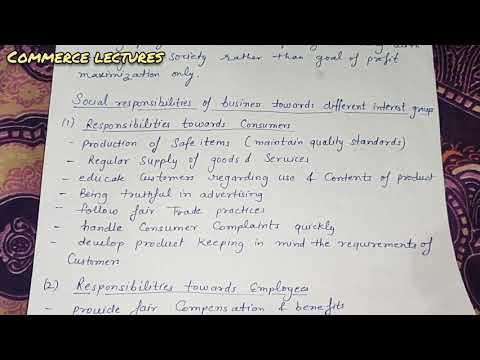 COMMERCE LECTURES
society rather than goal of profit
maximization only.
Social responsibilities of business towards different interest group
(1) Responsibilities towards Consumers
- production of Safe items (maintain quality standards)
- Regular Supply of goods & Services
- educate Customers regarding use & Contents of product
- Being truthful in advertising
- follow fair Trade practices
- handle Consumer Complaints quickly
- develop product keeping in mind the requirements of
Customer
(2) Responsibilities towards Employees
- provide fair Compensation & benefits